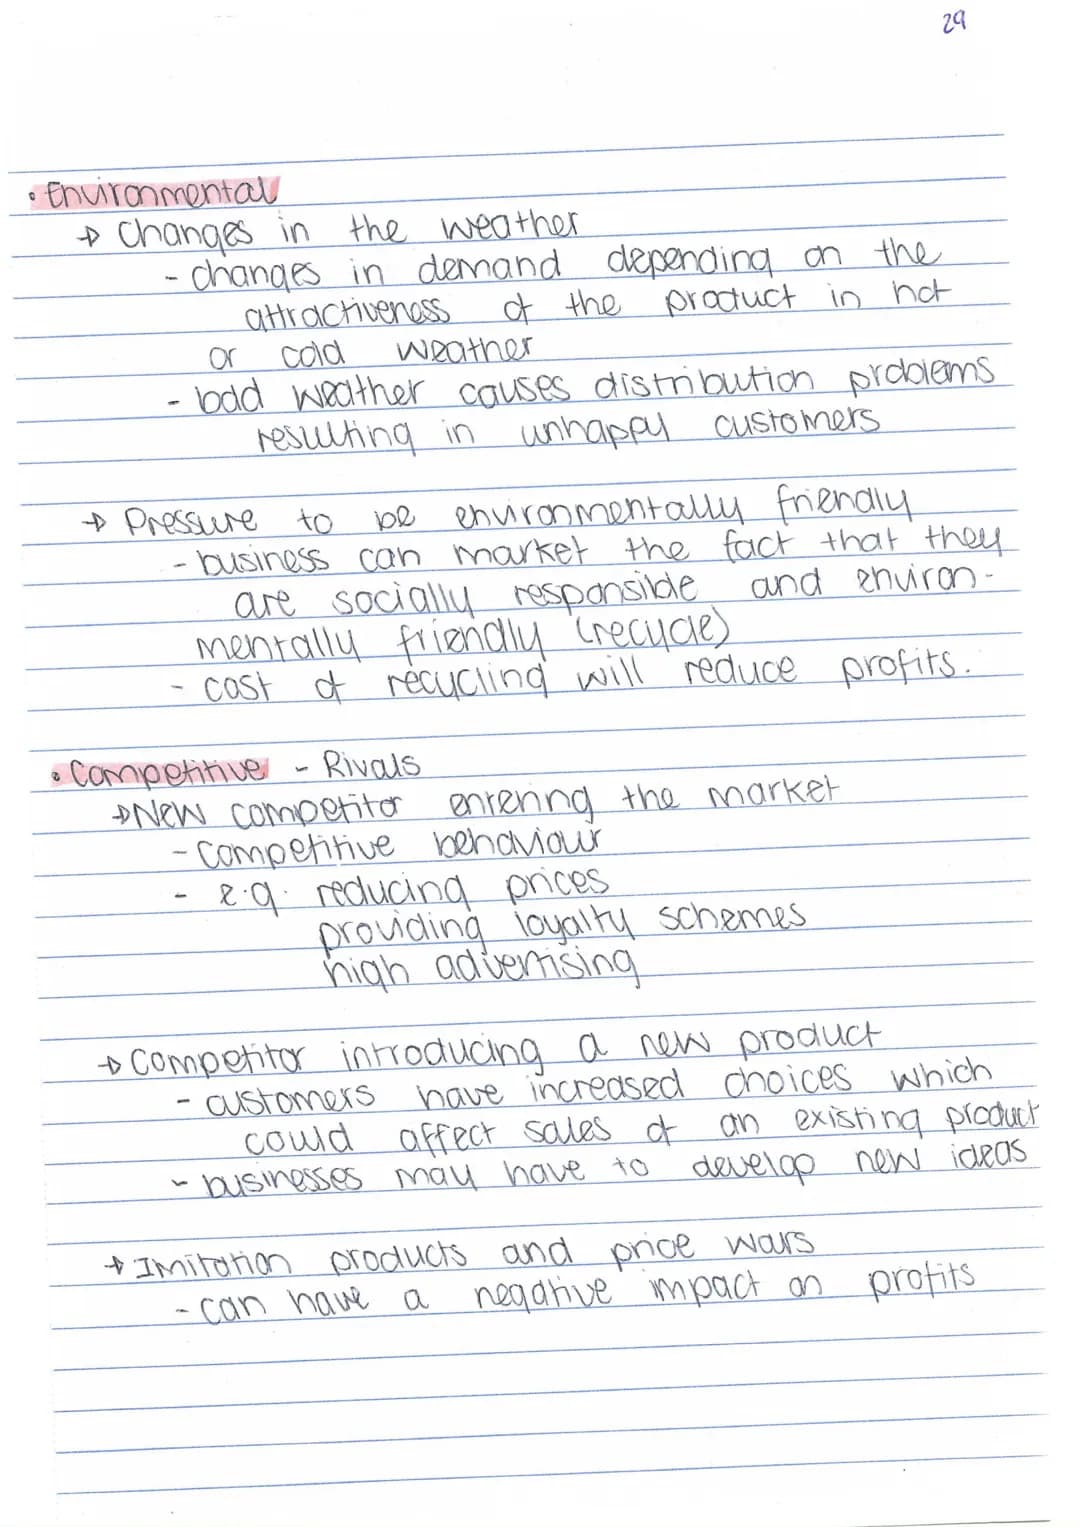 29
• Environmental
→ Changes in the weather
- changes in demand depending on the
attractiveness of the product in hot
or cold weather
- bad weather causes distribution problems
resulting in unhappy customers
→ Pressure to be environmentally friendly
- business can market the fact that they
are socially responsible and environ-
mentally friendly (recycle)
- cost of recycling will reduce profits.
• Competitive - Rivals
→ New competitor entering the market
- Competitive behaviour
- e.g. reducing prices
providing loyalty schemes
high advertising
→ Competitor introducing a new product
- customers have increased choices which
could affect sales of an existing product
- businesses may have to develop new ideas
→ Imitation products and price wars
- can have a negative impact on profits